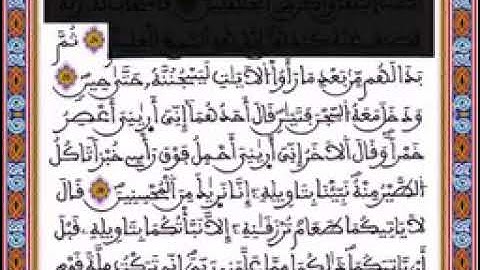 ثُمَّ
بَدَا لَهُم مِّنۢ بَعْدِ مَا رَأَوُاْ الْآيَٰتِ لَيَسْجُنُنَّهُۥ حَتَّىٰ حِينٍ
وَدَخَلَ مَعَهُ السِّجْنَ فَتَيَٰنِ قَالَ أَحَدُهُمَآ إِنِّيَ أَرَيٰنِيَ أَعْصِرُ
خَمْراً وَقَالَ الْآخَرُ إِنِّيَ أَرَيٰنِيَ أَحْمِلُ فَوْقَ رَأْسِي خُبْزاً تَأْكُلُ
الطَّيْرُ مِنْهُ نَبِّئْنَا بِتَأْوِيلِهِۦٓ إِنَّا نَرَيٰكَ مِنَ الْمُحْسِنِينَ قَالَ
لَا يَأْتِيكُمَا طَعَامٌ تُرْزَقَٰنِهِۦٓ إِلَّا نَبَّأْتُكُمَا بِتَأْوِيلِهِۦ قَبْلَ
أَنْ يَّأْتِيَكُمَا ذَٰلِكُمَا مِمَّا عَلَّمَنِي رَبِّيَ إِنِّي تَرَكْتُ مِلَّةَ قَوْمٍ